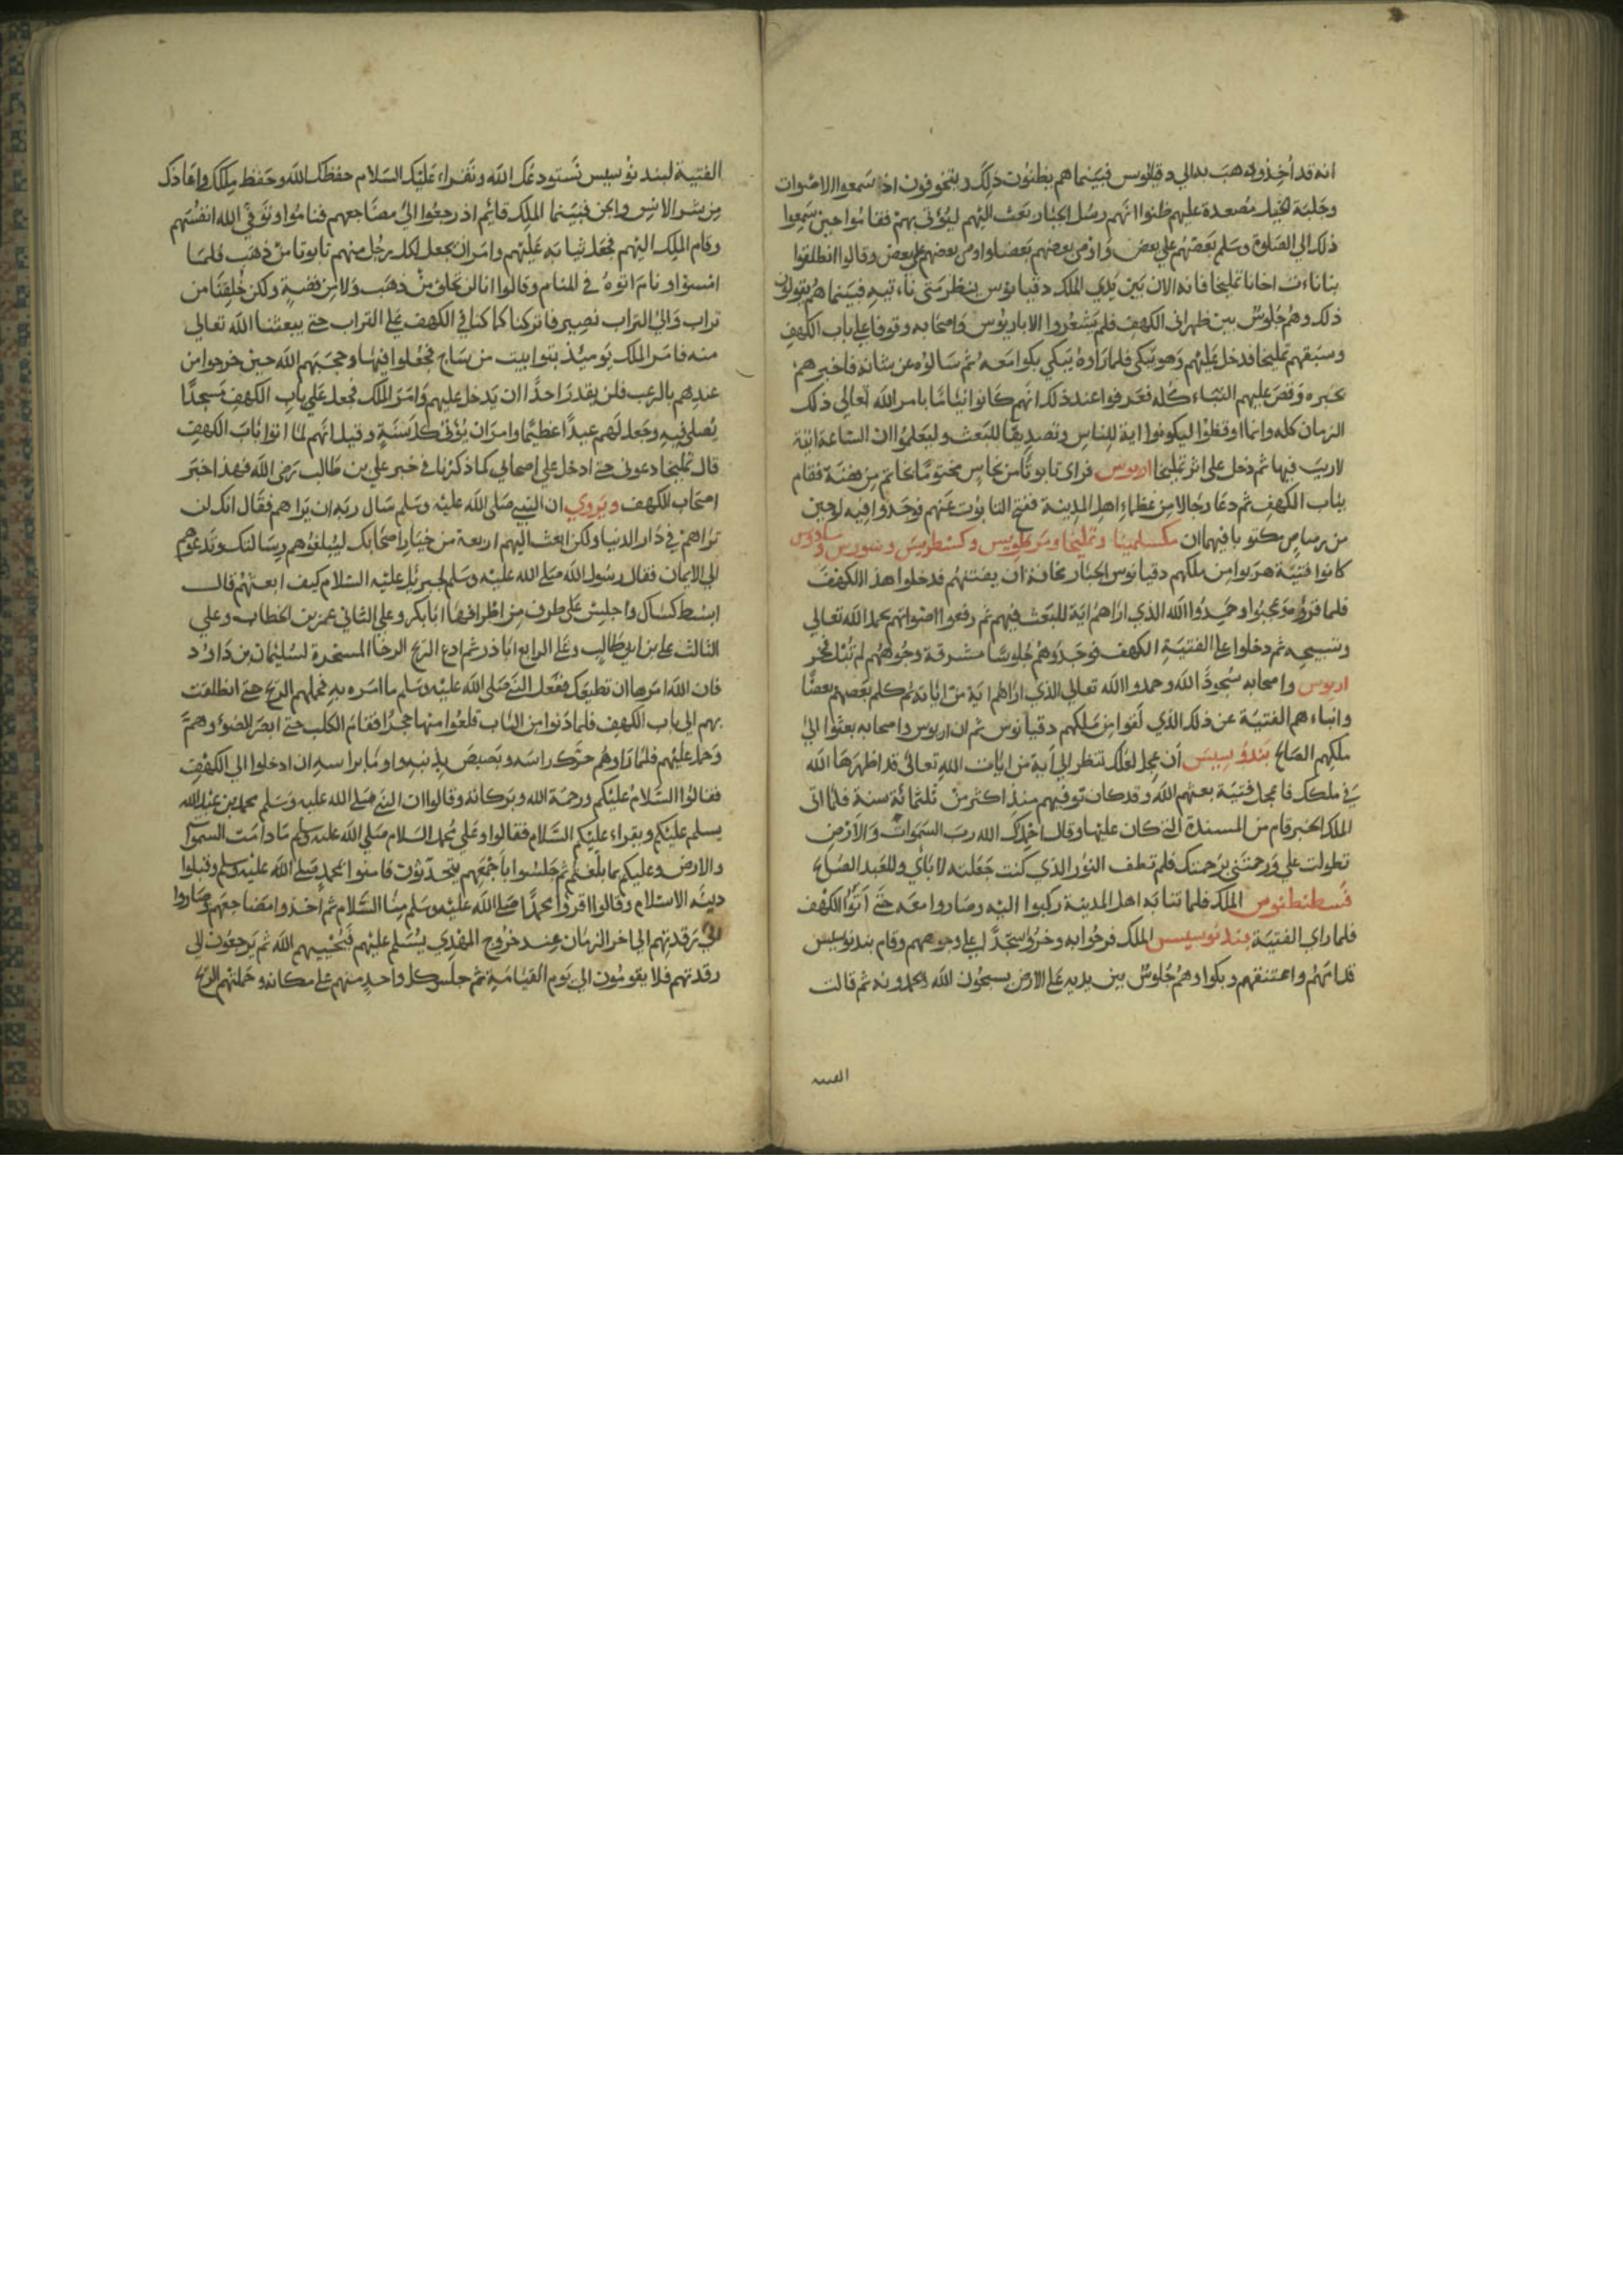 انه قد أُخِذ وذهب به الي دقيانوس فبينما هم يظنون ذلك ويتخوفون اذ سمعوا الاصوات
وجلبة الخيل مصعدة عليهم ظنوا انهم رسل الجبار بعث اليهم ليؤتي بهم فقاموا حين سمعوا
ذلك الي الصلوة وسلم بعضهم علي بعض وقالوا انطلقوا
بنا نات اخانا تمليخا فانه الان بين يدي الملك دقيانوس ينتظر متي ناتيه فبينما هم يقولون
ذلك وهم جلوس بين ظهراني الكهف فلم يشعروا الا باريوس واصحابه وقوفا علي باب الكهف
وسبقهم تمليخا فدخل عليهم وهو يبكي فلما راوه يبكي بكوا معه ثم سالوه عن شانه فاخبرهم
بخبره وقص عليهم النباء كله فعرفوا عند ذلك انهم كانوا نياما بامر الله تعالي ذلك
الزمان كله وانما اوقظوا ليكونوا اية للناس وتصديقا للبعث وليعلموا ان الساعة اتية
لا ريب فيها ثم دخل علي اثر تمليخا اريوس فراي تابوتا من نحاس مختوما بخاتم من فضة فقام
بباب الكهف ثم دعا رجالا من عظماء اهل المدينة ففتح التابوت عنهم فوجدوا فيه لوحين
من رصاص مكتوبا فيهما ان مكسلمينا وتمليخا ومرطوبس وكسطوبس وبيورس و
كانوا فتية هربوا من ملكهم دقيانوس الجبار مخافة ان يفتنهم فدخلوا هذا الكهف
فلما قرؤه عجبوا وحمدوا الله الذي اراهم اية للبعث فيهم ثم رفعوا اصواتهم بحمد الله تعالي
وتسبيحه ثم دخلوا علي الفتية الكهف فوجدوهم جلوسا مشرقة وجوههم لم تبل فخر
اريوس واصحابه سجودا لله وحمدوا الله تعالي الذي اراهم اية من اياته ثم كلم بعضهم بعضا
وانباءهم الفتية عن ذلك الذي لقوا من ملكهم دقيانوس ثم ان اريوس واصحابه بعثوا الي
ملكهم الصالح بندوسيس أن عجل لعلك تنظر الي اية من ايات الله تعالي قد اظهرها الله
في ملكك فاعجل فتية بعثهم الله وقد كان توفيهم منذ اكثر من ثلثمائة سنة فلما اتي
الملك الخبر قام من المسندة التي كان عليها وقال احمدك الله رب السموات والارض
تطولت علي ورحمتني برحمتك فلم تطف النور الذي كنت جعلته لابائي وللعبد الصالح
قسطنطنوس الملك فلما تنابه اهل المدينة ركبوا اليه وصاروا معه حتي أتوا الكهف
فلما راي الفتية بندنوسيس الملك فرحوا به وخروا سجدا علي وجوههم وقام بندنوسيس
قدامهم واعتنقهم وبكوا وهم جلوس بين يديه علي الارض يسبحون الله ويحمدونه ثم قالت
الفتية
الفتية لبندنوسيس نستودعك الله ونقراء عليك السلام حفظك الله وحفظ ملكك واعاذك
من شر الانس والجن فبينما الملك قائم اذ رجعوا الي مضاجعهم فناموا وتوفي الله انفسهم
وقام الملك اليهم فجعل ثيابه عليهم وامر ان يجعل لكل رجل منهم تابوتا من ذهب فلما
امسوا ونام اتوه في المنام وقالوا انا لن نخلق من ذهب ولا من فضة ولكن خلقنا من
تراب والي التراب نصير فاتركنا كما كنا في الكهف علي التراب حتي يبعثنا الله تعالي
منه فامر الملك يوميئذ بتوابيت من ساج فجعلوا فيها وحجبهم الله حين خرجوا من
عندهم بالرعب فلن يقدر احدا ان يدخل عليهم وامر الملك فجعل علي باب الكهف مسجدا
يصلي فيه وجعل لهم عيدا عظيما وامر ان يؤتي كل سنة وقيل انهم لما اتوا باب الكهف
قال تمليخا دعوني حتي ادخل علي اصحابي كما ذكرنا في خبر علي بن طالب رضي الله فهذا خبر
اصحاب الكهف ويروي ان النبي صلي الله عليه وسلم سال ربه ان يراهم فقال انك لن
تراهم في دار الدنيا ولكن ابعث اليهم اربعة من خيار اصحابك ليبلغوهم رسالتك وتدعوهم
الي الايمان فقال رسول الله صلي الله عليه وسلم لجبرئل عليه السلام كيف ابعثهم قال
ابسط كساك واجلس علي طرف من اطرافها ابا بكر وعلي الثاني عمر بن الخطاب وعلي
الثالث علي بن ابي طالب وعلي الرابع ابا ذر ثم ادع الريح الرخا المسخرة لسليمان بن داود
فان الله امرها ان تطيعك ففعل النبي صلي الله عليه وسلم ما امره به فحملهم الريح حتي انطلقت
بهم الي باب الكهف فلما دنوا من الباب قلعوا منها حجرا فقام الكلب حتي ابصر الضوء وهمّ
وحمل عليهم فلما راوهم حرك راسه وبصبص بذنبه واوما براسه ان ادخلوا الي الكهف
فقالوا السلام عليكم ورحمة الله وبركاته وقالوا ان النبي صلي الله عليه وسلم محمد بن عبد الله
يسلم عليكم ويقراء عليكم السلام فقالوا وعلي محمد السلام صلي الله عليه وسلم ما دامت السموات
والارض وعليكم بما بلغتم ثم جلسوا باجمعهم يتحدثون فامنوا بمحمد صلي الله عليه وسلم وقبلوا
دينه الاسلام وقالوا اقروا محمدا صلي الله عليه وسلم منا السلام ثم اخذوا مضاجعهم وصاروا
الي رقدتهم الي اخر الزمان عند خروج المهدي يسلم عليهم فيحييهم الله ثم يرجعون الي
رقدتهم فلا يقومون الي يوم القيامة ثم جلس كل واحد منهم علي مكانه وحملتهم الريح